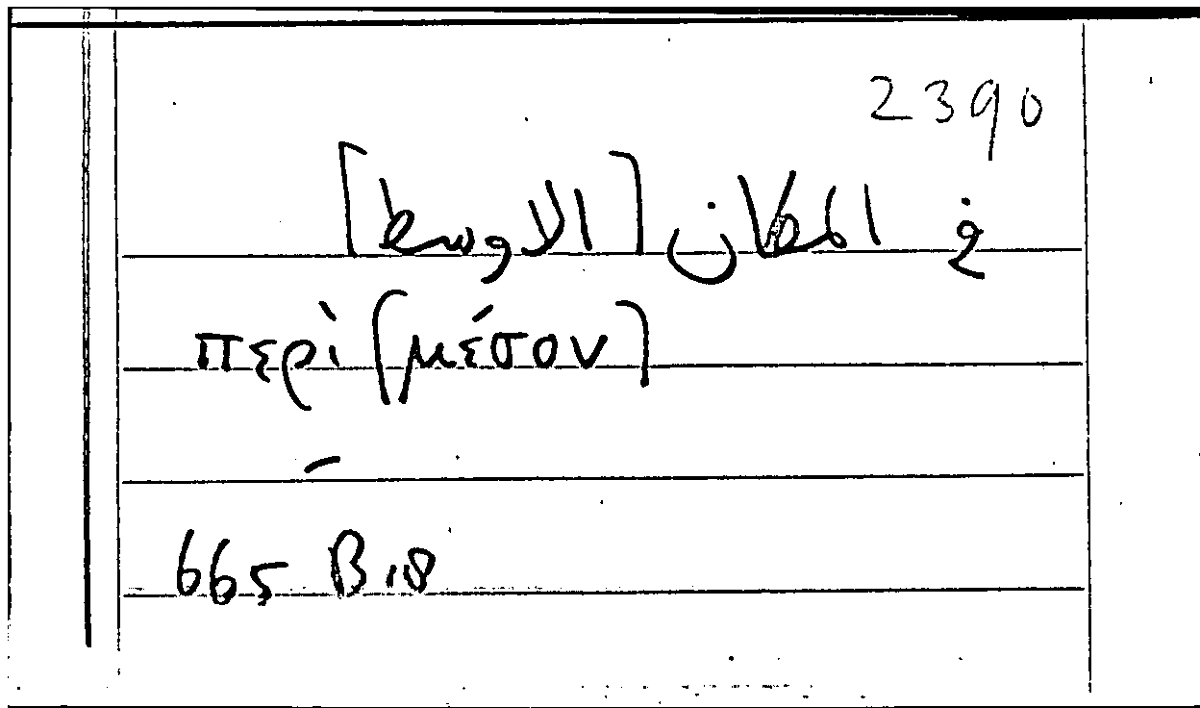 2390
في المكان [الاوسط]
περὶ [μέσον]
–
665 B 18